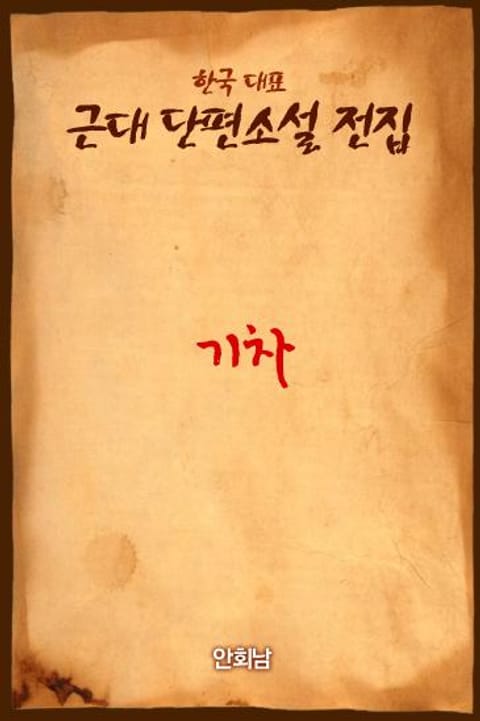 한국 대표
근대 단편소설 전집
기차
안회남